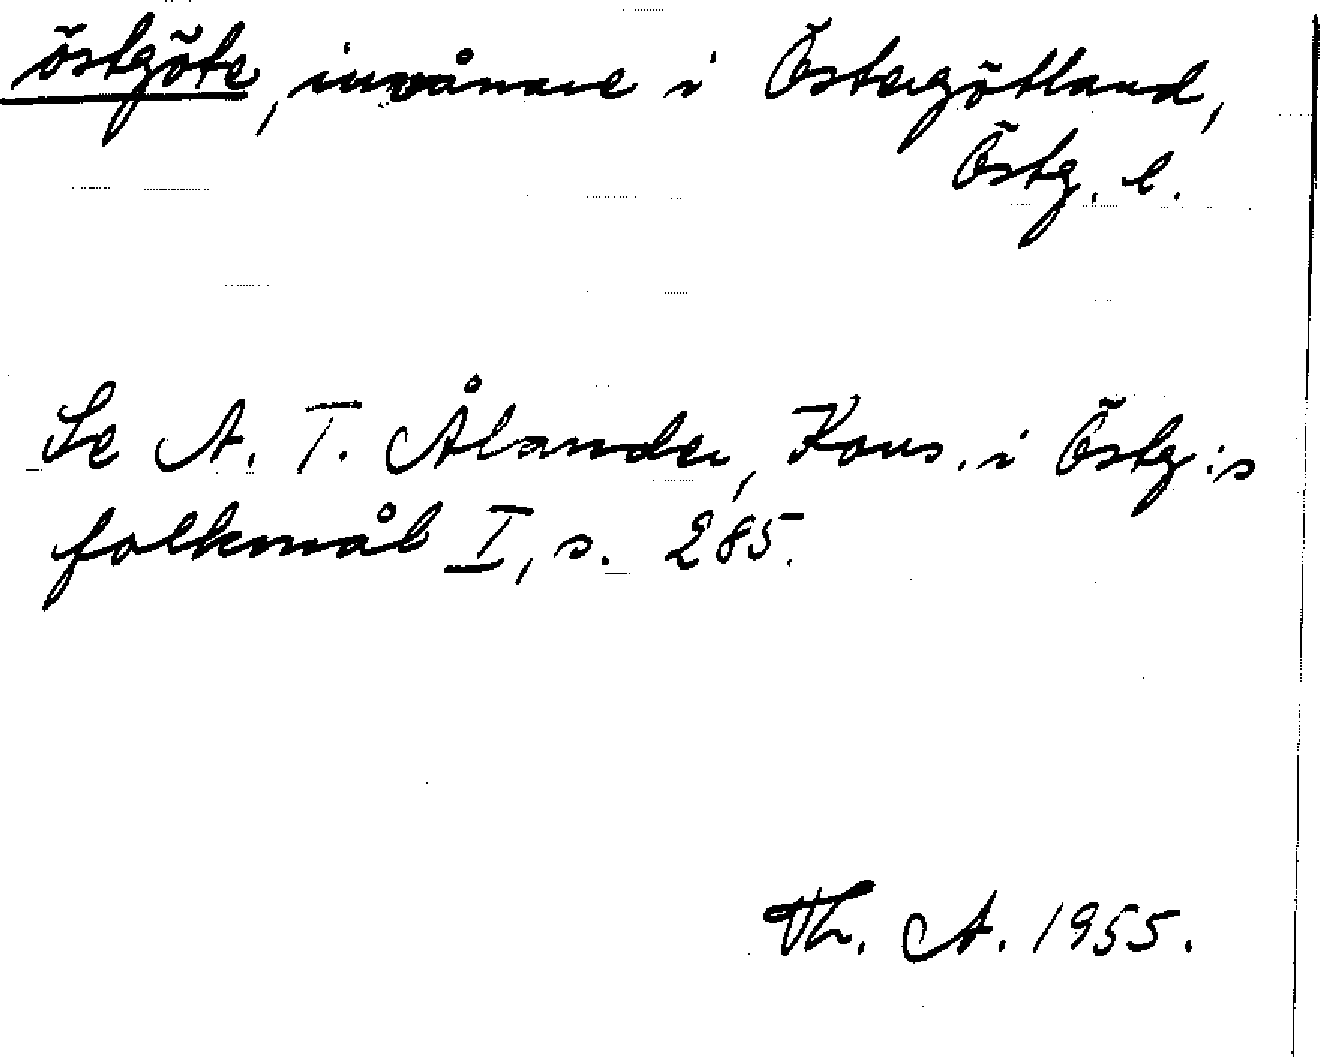 östgöte, invånare i Östergötland,
Östg. l.
Se A. T. Ålander, Kons. i Östg:s
folkmål I, s. 285.
Th. A. 1955.